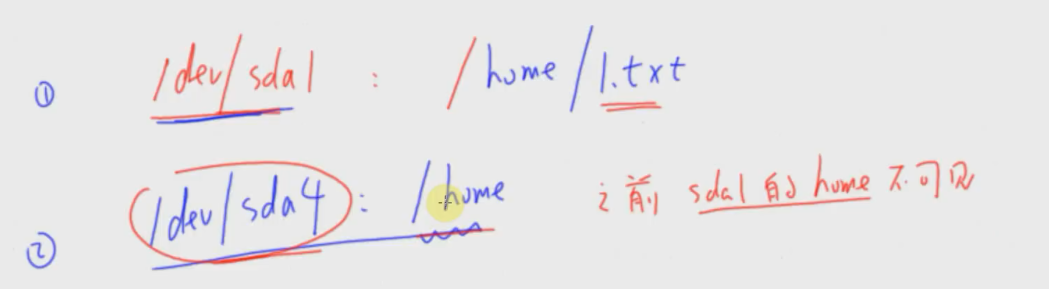 ① /dev/sda1 : /home/1.txt
② /dev/sda4 : /home 之前 sda1的home不可见